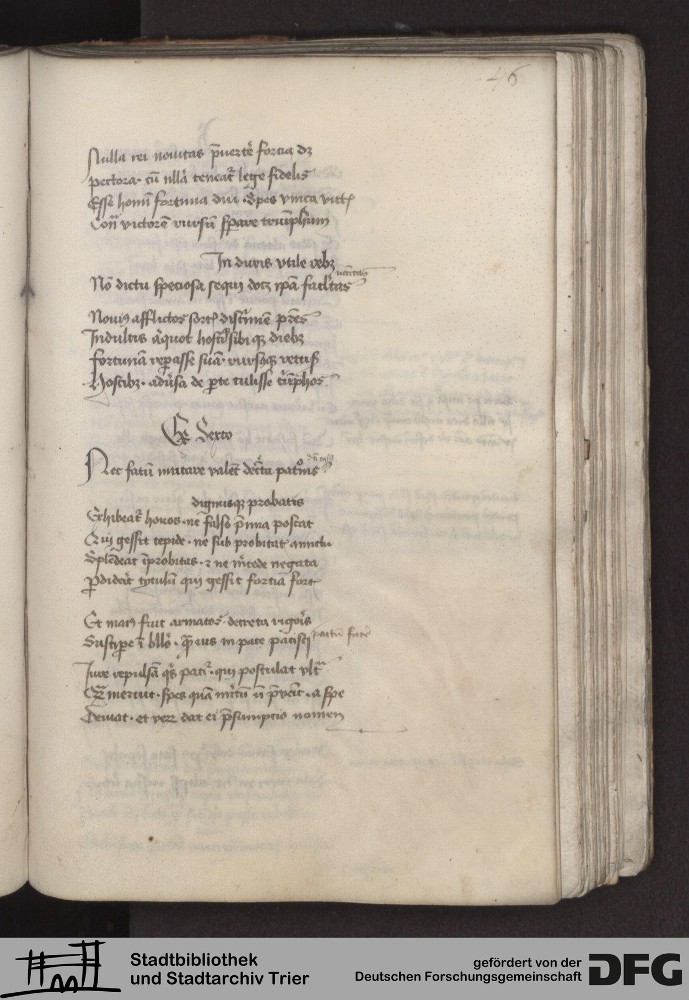 46
Nulla rei nouitas p̄uertē forcia dꝫ
Pectora · cū nllā teneat᷑ lege fidelis
Esse homī fortuna diu · Spes vnica victꝭ
Con᷑ victorē rursū sꝑare triūphum
In duris vtile rebꝫ
Nō dictu speciosa sequi docꝫ ipā facl̓tas
Nouiꝰ afflictoꝝ sortꝭ discrimē
Indultis aliquot hostī sibi qꝫ diebꝫ
fortunā reꝑasse suā · rursꝰqꝫ
Hostibꝫ · aduͥsa de ꝑte tulisse triūphos
Ex Sexto
Nec fatū mutare valēt decͬta patͦnis
dignisqꝫ probatis
Exhibeat᷑ honos · ne falso p̄mia poscat
Qui gessit tepide · ne sub probitat᷑ amictu
Splēdeat īprobitas · ⁊ ne mͬcede negata
ꝑdideͬit tytulū qui gessit fortia fort᷑
Et maiꝰ fuit armatoꝝ decreta vigoris
Suscipe ī bllo · qͣ ius in pace pacisci
Iure repulsā qͥs patit᷑ · qui postulat vltͣ
Qͣ meruit · spes quā mͥtū nō p̄uēit · a spe
Deuiat · et veꝝ dat ei p̄sumptio nomen
Stadtbibliothek
und Stadtarchiv Trier
gefördert von der
Deutschen Forschungsgemeinschaft
DFG